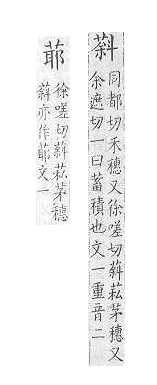 䔑
同都切禾穗又徐嗟切䔑菰茅穗又
余遮切一曰蓄積也文一重音二
徐嗟切䔑菰茅穗
䔑亦作文一